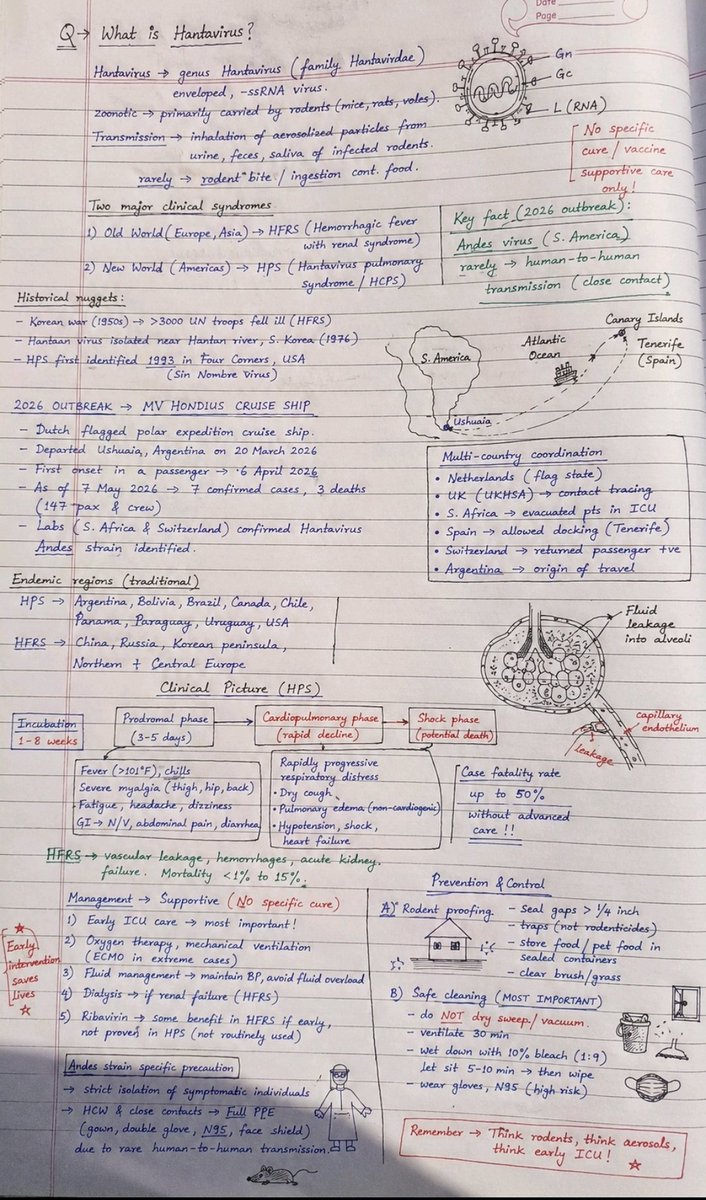 Date
Page
Q→ What is Hantavirus?
Hantavirus → genus Hantavirus (family Hantavirdae)
enveloped, -ssRNA virus.
zoonotic → primarily carried by rodents (mice, rats, voles).
Transmission → inhalation of aerosolized particles from
urine, feces, saliva of infected rodents.
rarely → rodent bite / ingestion cont. food.
Gn
Gc
L (RNA)
No specific
cure / vaccine
supportive care
only!
Two major clinical syndromes
1) Old World (Europe, Asia) → HFRS (Hemorrhagic fever
with renal syndrome)
2) New World (Americas) → HPS (Hantavirus pulmonary
syndrome / HCPS)
Key fact (2026 outbreak):
Andes virus (S. America)
rarely → human-to-human
transmission (close contact)
Historical nuggets:
- Korean war (1950s) → >3000 UN troops fell ill (HFRS)
- Hantaan virus isolated near Hantan river, S. Korea (1976)
- HPS first identified 1993 in Four Corners, USA
(Sin Nombre Virus)
S. America
Atlantic
Ocean
Canary Islands
Tenerife
(Spain)
Ushuaia
2026 OUTBREAK → MV HONDIUS CRUISE SHIP
- Dutch flagged polar expedition cruise ship.
- Departed Ushuaia, Argentina on 20 March 2026
- First onset in a passenger → 6 April 2026
- As of 7 May 2026 → 7 confirmed cases, 3 deaths
(147 pax & crew)
- Labs (S. Africa & Switzerland) confirmed Hantavirus
Andes strain identified.
Multi-country coordination
• Netherlands (flag state)
• UK (UKHSA) → contact tracing
• S. Africa → evacuated pts in ICU
• Spain → allowed docking (Tenerife)
• Switzerland → returned passenger +ve
• Argentina → origin of travel
Endemic regions (traditional)
HPS → Argentina, Bolivia, Brazil, Canada, Chile,
Panama, Paraguay, Uruguay, USA
HFRS → China, Russia, Korean peninsula,
Northern + Central Europe
Fluid
leakage
into alveoli
capillary
endothelium
leakage
Clinical Picture (HPS)
Incubation
1-8 weeks
Prodromal phase
(3-5 days)
Cardiopulmonary phase
(rapid decline)
Shock phase
(potential death)
Fever (>101°F), chills
Severe myalgia (thigh, hip, back)
Fatigue, headache, dizziness
GI → N/V, abdominal pain, diarrhea
Rapidly progressive
respiratory distress
• Dry cough
• Pulmonary edema (non-cardiogenic)
• Hypotension, shock,
heart failure
Case fatality rate
up to 50%
without advanced
care !!
HFRS → vascular leakage, hemorrhages, acute kidney
failure. Mortality <1% to 15%.
Management → Supportive (No specific cure)
1) Early ICU care → most important!
2) Oxygen therapy, mechanical ventilation
(ECMO in extreme cases)
3) Fluid management → maintain BP, avoid fluid overload
4) Dialysis → if renal failure (HFRS)
5) Ribavirin → some benefit in HFRS if early,
not proven in HPS (not routinely used)
Early
intervention
saves
lives
Andes strain specific precaution
→ strict isolation of symptomatic individuals
→ HCW & close contacts → Full PPE
(gown, double glove, N95, face shield)
due to rare human-to-human transmission.
Prevention & Control
A) Rodent proofing
- Seal gaps > 1/4 inch
- traps (not rodenticides)
- store food / pet food in
sealed containers
- clear brush/grass
B) Safe cleaning (MOST IMPORTANT)
- do NOT dry sweep / vacuum.
- ventilate 30 min
- wet down with 10% bleach (1:9)
Let sit 5-10 min → then wipe
- wear gloves, N95 (high risk)
Remember → Think rodents, think aerosols,
think early ICU!